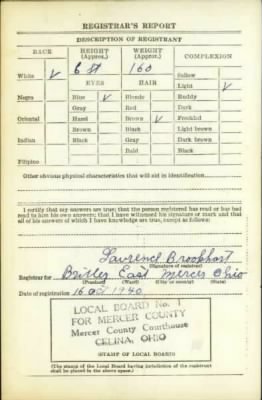 REGISTRAR'S REPORT
DESCRIPTION OF REGISTRANT
RACE HEIGHT (Approx.) WEIGHT (Approx.) COMPLEXION
White ✓ 6 ft 160 Sallow
EYES HAIR Light ✓
Negro Blue ✓ Blonde Ruddy
Gray Red Dark
Oriental Hazel Brown ✓ Freckled
Brown Black Light brown
Indian Black Gray Dark brown
Bald Black
Filipino
Other obvious physical characteristics that will aid in identification
I certify that my answers are true; that the person registered has read or has had
read to him his own answers; that I have witnessed his signature or mark and that
all of his answers of which I have knowledge are true, except as follows:
Lawrence Brookhart
(Signature of registrar)
Registrar for Butler East Mercer Ohio
(Precinct) (Ward) (City or county) (State)
Date of registration 16 Oct 1940
LOCAL BOARD No. 1
FOR MERCER COUNTY
Mercer County Courthouse
CELINA, OHIO
(STAMP OF LOCAL BOARD)
(The stamp of the Local Board having jurisdiction of the registrant
shall be placed in the above space.)